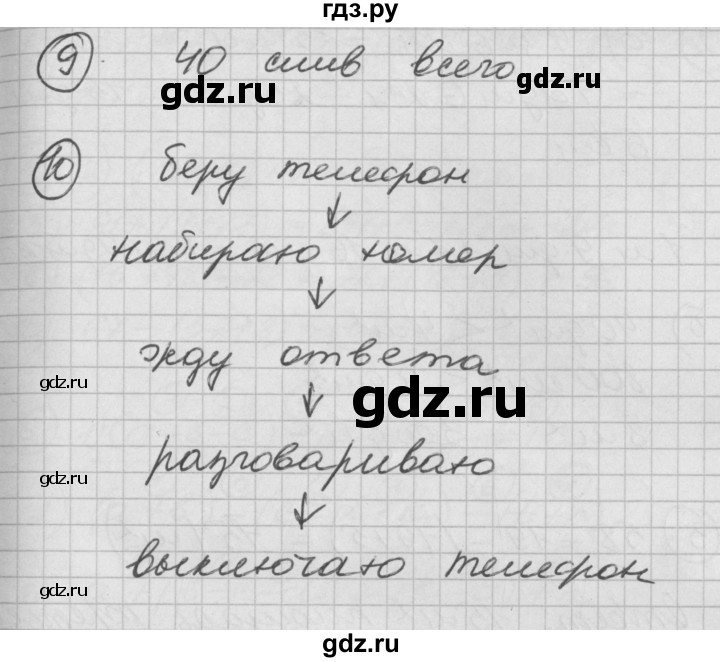 гдз.ру
9 40 слив всего
gdz.ru gdz.ru
10 беру телефон
↓
набираю номер
↓
жду ответа
gdz.ru
↓ gdz.ru
разговариваю
gdz.ru
↓
выключаю телефон
gdz.ru
gdz.ru